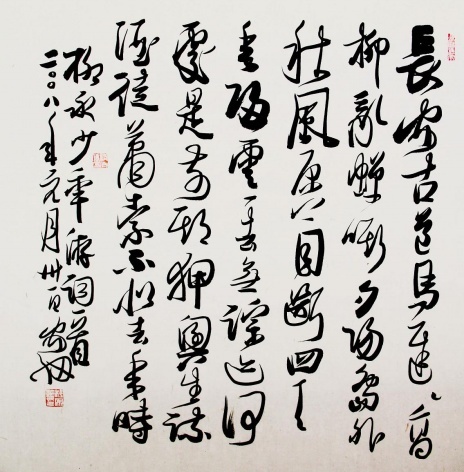 長安古道馬遲遲高
柳亂蟬嘶夕陽島外
秋風原上目斷四天
垂歸雲一去無踪迹何
處是前期狎興生疏
酒徒蕭索不似去年時
柳永少年游詞一首
二〇〇八年元月